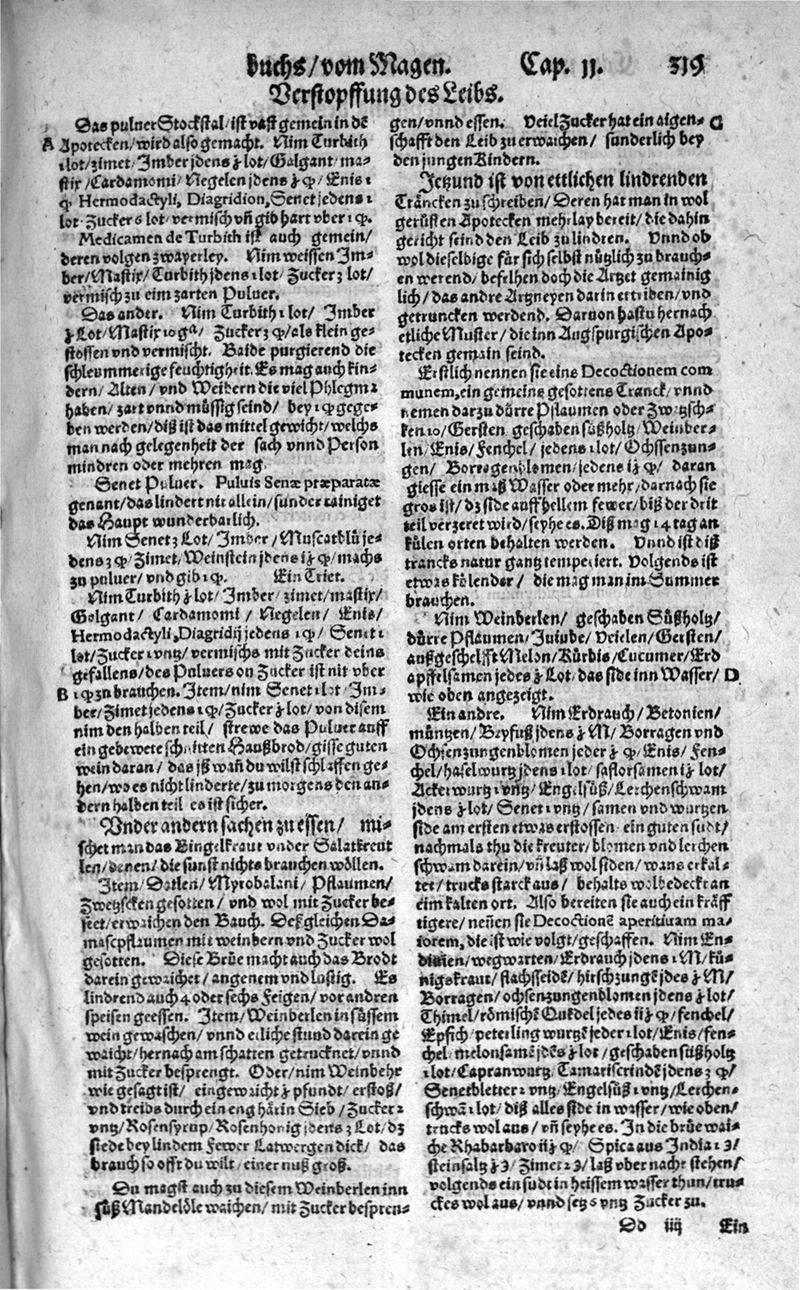 buchs/ vom Magen. Cap. 11. 319
Verstopffung des Leibs.
Das pulver Stockstal/ ist vast gemein in dē
A Apotecken/ wird also gemacht. Nim Turbith
1 lot/ zimet/ Imber jdens ʒ lot/ Galgant/ ma-
stix/ Cardamomi/ Negelen jdens
Hermodactyli, Diagridion, Senet jedens 1
lot Zucker 6 lot/ vermisch vñ gib hart vber
Medicamen de Turbith ist auch gemein/
deren volgen zwayerley. Nim weissen Im-
ber/ Mastix/ Turbith jdens 1 lot/ Zucker 2 lot/
vermisch zu eim zarten Puluer.
Das ander. Nim Turbith 1 lot/ Imber
Lot/ Mastix Zucker als klein ge-
stossen vnd vermischt. Baide purgierend die
schleummerige feuchtigheit. Es mag auch kin-
dern/ Alten/ vnd Weibern die viel Phlegma
haben/ zart vnnd müssig seind/ bey gege-
ben werden/ diß ist das mittel gewicht/ welchs
man nach gelegenheit der sach vnnd Person
mindren oder mehren mag
Senet Puluer. Puluis Senæ præparatæ
genant/ das lindert nit allein/ sunder rainiget
das Haupt wunderbarlich.
Nim Senet 2 Lot/ Imber/ Muscatblü je-
dens Zimet/ Weinstein jdens machs
zu puluer/ vnd gib Ein Triet.
Nim Turbith lot/ Imber/ zimet/ mastix/
Galgant/ Cardamomi/ Negelen/ Enis/
Hermodactyli, Diagridij jedens Senet 1
lot/ Zucker 1 vntz/ vermischs mit Zucker deins
gefallens/ des Puluers on Zucker ist nit vber
B zu brauchen. Item/ nim Senet 1 lot Im-
ber/ Zimet jedens Zucker lot/ von disem
nim den halben teil/ strewe das Puluer auff
ein gebewete schnitten Haußbrod/ gisse guten
wein daran/ das iß wañ du wilst schlaffen ge-
hen/ wo es nicht linderte/ zu morgens den an-
dern halben teil es ist sicher.
Vnder andern sachen zu essen/ mi-
schet man das Bingelkraut vnder Salatkreut
len/ denen/ die sunst nichts brauchen wöllen.
Item/ Datlen/ Myrobalani/ Pflaumen/
Zweyscken gesotten/ vnd wol mit Zucker be-
seet/ erwaichen den Bauch. Deßgleichen Da-
mascpflaumen mit weinbern vnd Zucker wol
gesotten. Diese Brüe macht auch das Brodt
darein gewaichet/ angenem vnd lustig. Es
lindrend auch 4 oder sechs Feigen/ vor andren
speisen geessen. Item/ Weinberlen in süssem
wein gewaschen/ vnnd etliche stund darein ge
waicht/ hernach am schatten getrucknet/ vnnd
mit Zucker besprengt. Oder/ nim Weinbehr
wie gesagt ist/ eingewaicht pfundt/ erstoß/
vnd treibs durch ein eng härin Sieb/ Zucker 2
vntz/ Rosensyrup/ Rosenhonig jdens 2 Lot/ dz
siede bey lindem Fewer Latwergen dick/ das
brauch so offt du wilt/ einer nuß groß.
Du magst auch zu diesem Weinberlen inn
süß Mandelöle waichen/ mit Zucker bespren-
gen/ vnnd essen. Veiel Zucker hat ein aigen- C
schafft den Leib zu erwaichen/ sunderlich bey
den jungen Kindern.
Jetzund ist von ettlichen lindrenden
Träncken zu schreiben/ Deren hat man in wol
gerüsten Apotecken mehrlay bereit/ die dahin
gericht seind den Leib zu lindren. Vnnd ob
wol dieselbige für sich selbst nützlich zu brauch-
en werend/ befelhen doch die Artzet gemainig
lich/ das andre Artzneyen darin ertriben/ vnd
getruncken werdend. Daruon hastu hernach
etliche Muster/ die inn Augspurgischen Apo-
tecken gemain seind.
Erstlich nennen sie eins Decoctionem com
munem, ein gemeine gesottens Tranck/ vnnd
nemen darzu dürre Pflaumen oder Zwytsch-
ken 10/ Gersten geschaben süßholtz/ Weinber-
len/ Enis/ Fenchel/ jedens 1 lot/ Ochssenzun-
gen/ Borragenblomen/ jedens daran
giesse ein maß Wasser oder mehr/ darnach sie
gros ist/ dz side auff hellem fewer/ biß der drit
teil verzeret wird/ seyhe es. Diß mag 14 tag an
külen orten behalten werden. Vnnd ist diß
trancks natur gantz temperiert. Volgends ist
etwas kölender/ die mag man im Summer
brauchen.
Nim Weinberlen/ geschaben Süßholtz/
dürre Pflaumen/ Juiube/ Veielen/ Gersten/
außgeschelfft Melon/ Kürbis/ Cucumer/ Erd
apffelsamen jedes Lot/ das side inn Wasser/ D
wie oben angezeigt.
Ein andre. Nim Erdrauch/ Betonien/
müntzen/ Beyfuß jdens M/ Borragen vnd
Ochsenzungenblomen jeder Enis/ Fen-
chel/ haselwurtz jdens 1 lot/ saflorsamen lot/
Ackerwurtz 1 vntz/ Engelsüß/ Lerchenschwam
jdens lot/ Senet 1 vntz/ samen vnd wurtzen
side am ersten etwas erstossen ein guten sudt/
nachmals thu die kreuter/ blomen vnd lerchen
schwam darein/ vñ laß wol siden/ wans erkal-
tet/ trucks starck aus/ behalts wol bedeckt an
eim kalten ort. Also bereiten sie auch ein kräff
tigere/ neñen sie Decoctionē aperitiuam ma-
iorem, die ist wie volgt/ geschaffen. Nim En-
diuien/ wegwarten/ Erdrauch jdens 1 M/ kü-
nigskraut/ flachsseidē/ hirschzungē jdes M/
Borragen/ ochsenzungenblomen jdens lot/
Thimel/ römische Quedel jedes fenchel/
Epfich/ peterling wurtzē jeder 1 lot/ Enis/ fen-
chel/ melonsamē jdēs lot/ geschaben süßholtz
lot/ Capranwurtz Tamariscrindē jdens
Senetbletter 2 vntz/ Engelsüß 1 vntz/ Lerchen-
schwā 1 lot/ diß alles side in wasser/ wie oben/
trucks wol aus/ vñ seyhe es. In die brüe wai-
che Rhabarbaro Spica aus India
steinsaltz Zimet laß vber nacht stehen/
volgends ein sudt in heissem wasser thun/ tru-
ckes wol aus/ vnnd setz 6 vntz Zucker zu.
Dd iiij Ein